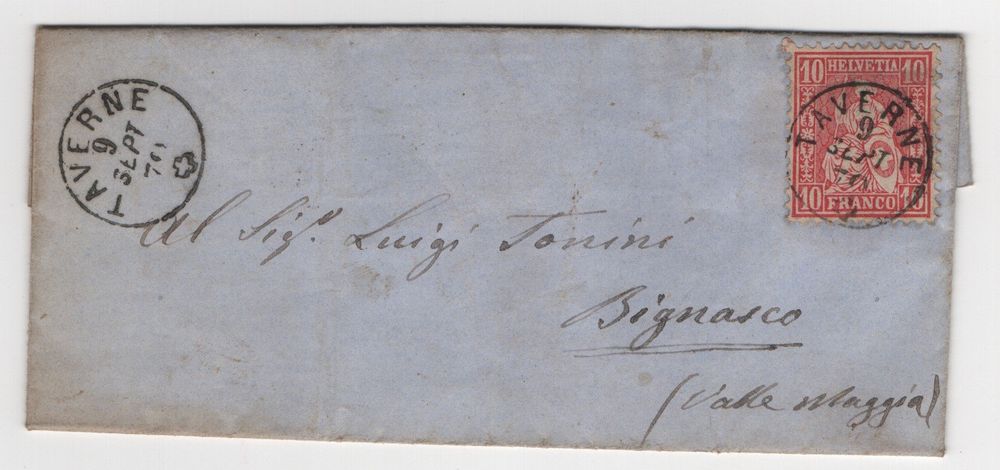 TAVERNE
9
SEPT
70
10 HELVETIA 10
TAVERNE
9
SEPT
10 FRANCO 10
Al Sigr. Luigi Tonini
Bignasco
(Valle Maggia)